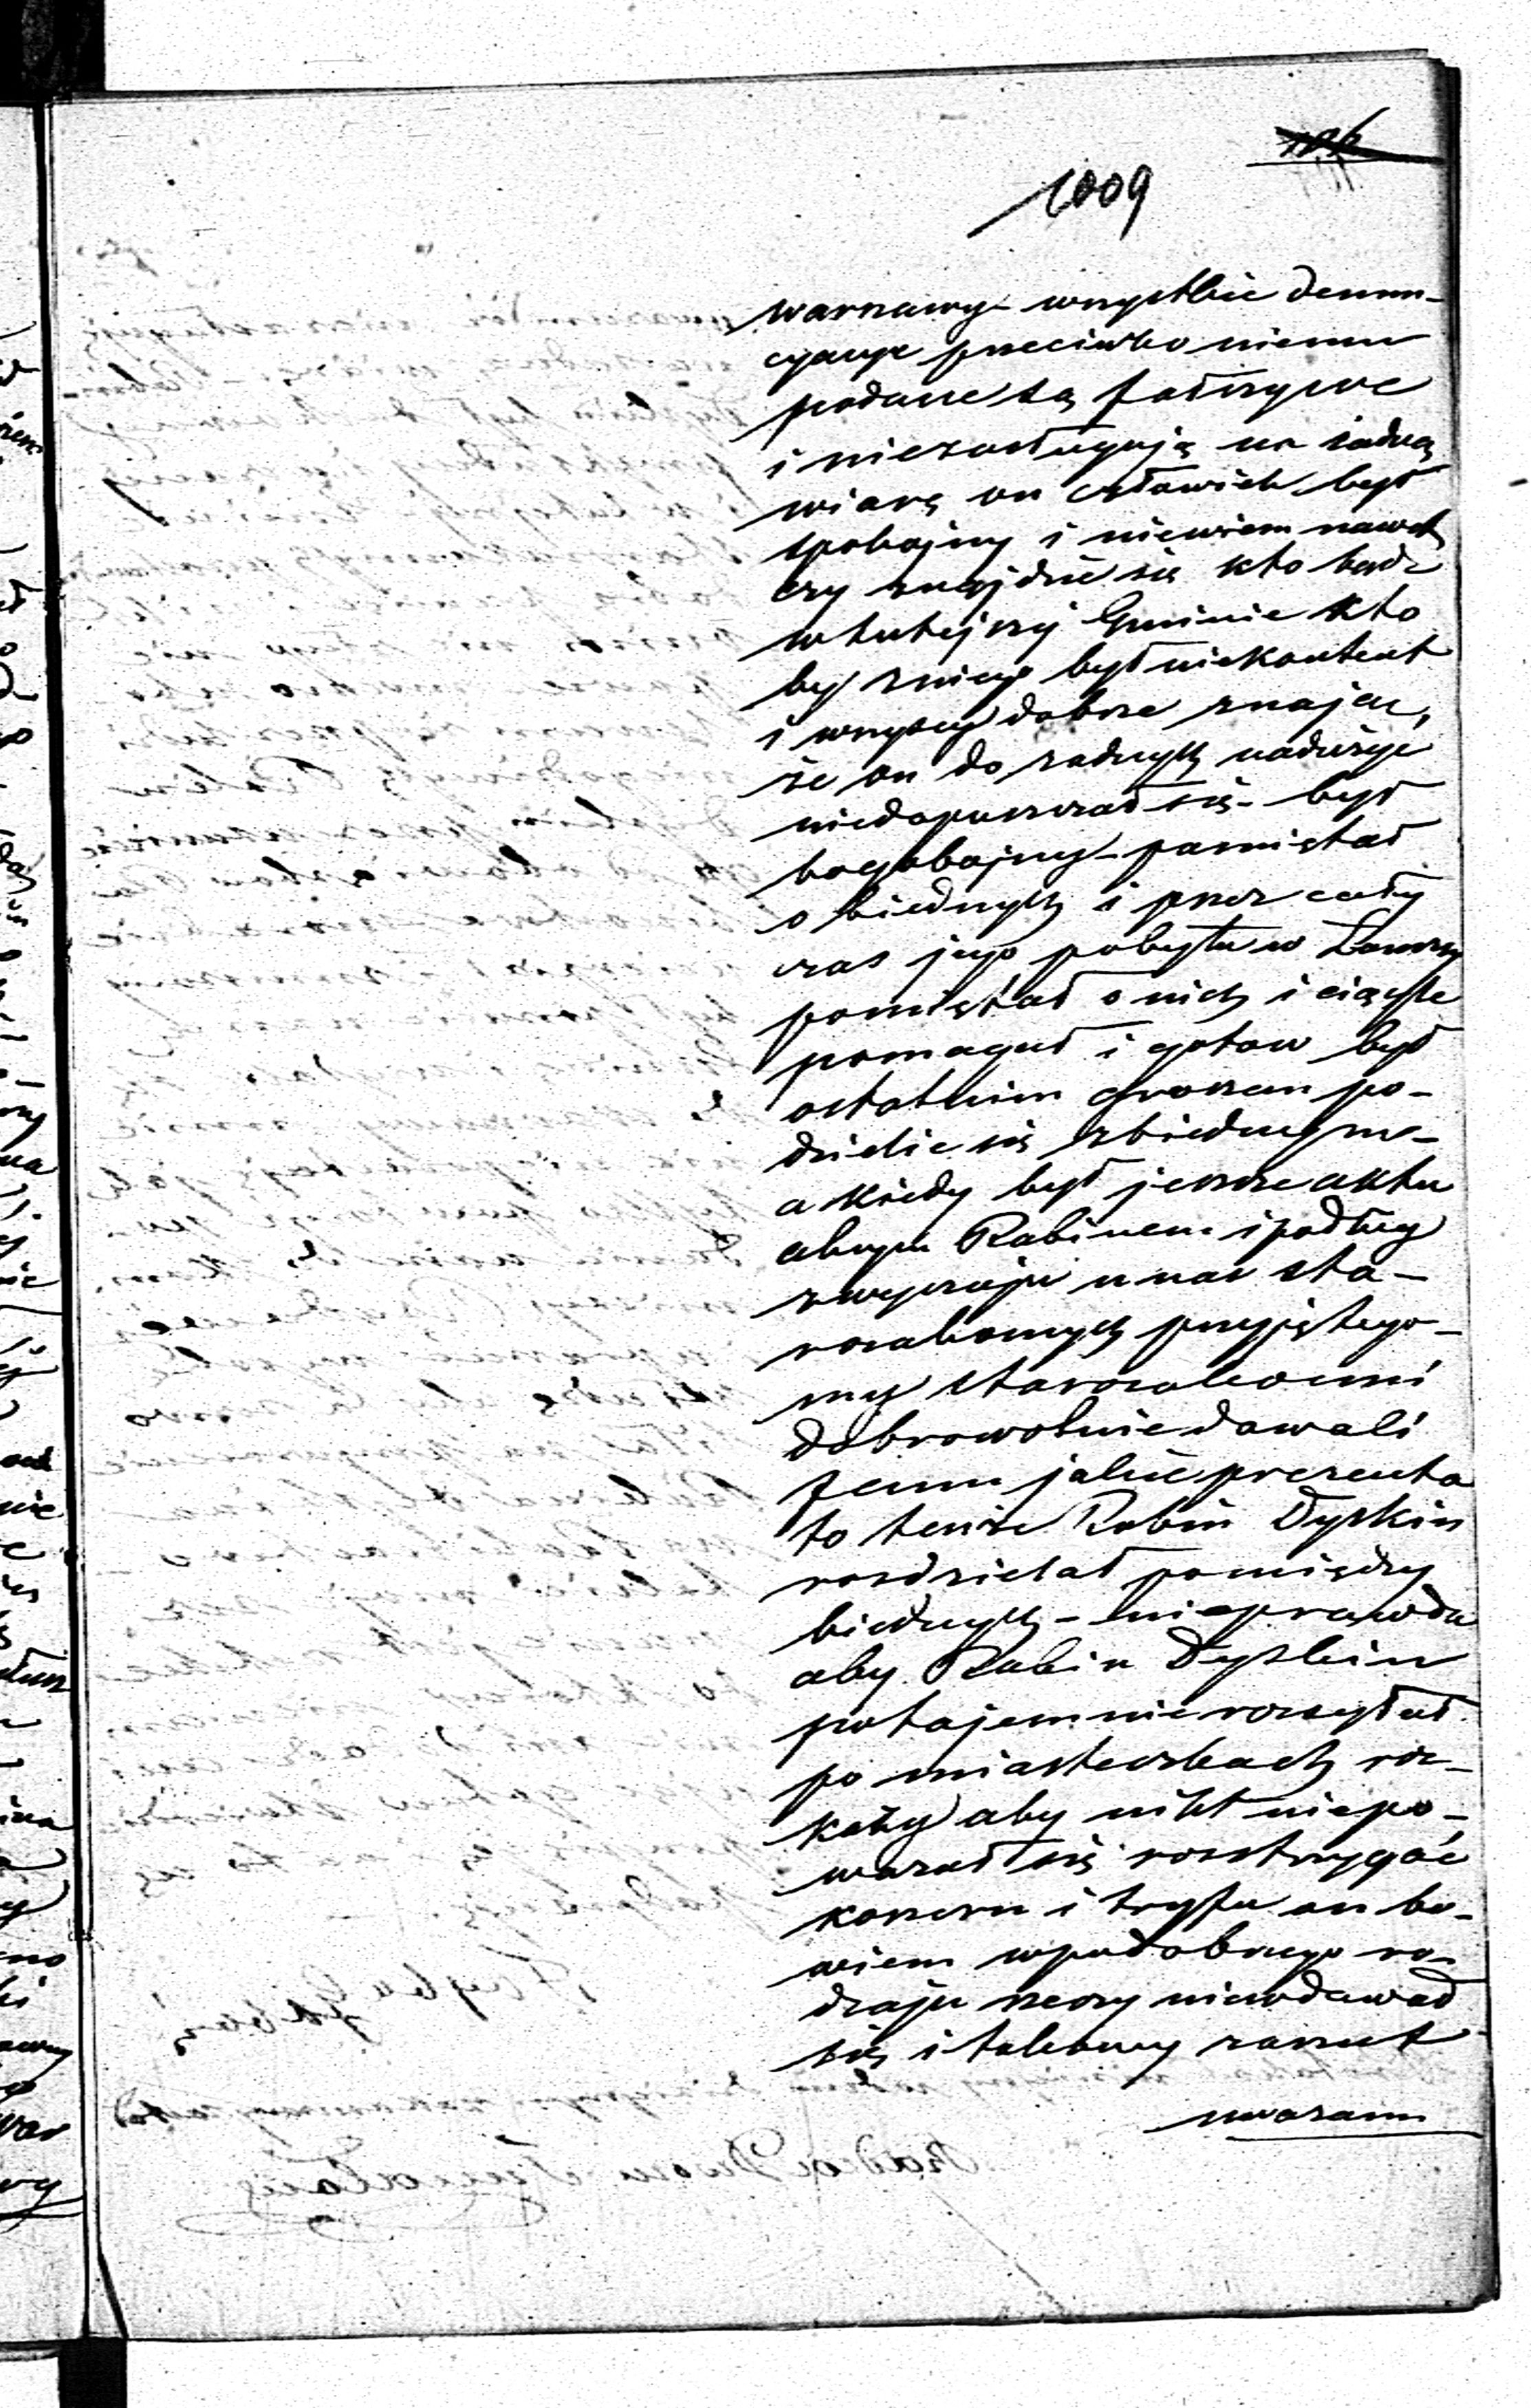 1009
warszawy – wszystkie denun-
cyacye przeciwko niemu
podane są fałszywe
i niezasługują na żadną
wiarę on człowiek był
spokojny i niewiem nawet
czy znajdzie się kto bądz
w tutejszej Gminie kto
by zniego był niekontent
i wszyscy dobrze znają,
że on do żadnych nadużyć
niedopuszczał się – był
bogobojny – pamiętał
o biednych i przez cały
czas jego pobytu w Łomży
pamiętał o nich i ciągle
pomagał i gotow był
ostatnim groszem po-
dzielic się zbiednyme –
a kiedy był jeszcze aktu
alnym Rabinem i podług
zwyczaju u nas sta-
rozakonnych przyjętego –
my starozakonni
dobrowolnie dawali
Jemu jakie prezenta
to tenże Rabin Dyskin
rozdzielał pomiędzy
biednych – nieprawda
aby Rabin Dyskin
potajemnie rozsyłał
po miasteczkach roz-
kazy aby nikt niepo-
ważał się rozstrzygać
koszeru i tryfu on bo-
wiem wpodobnego ro-
dzaju rzeczy niewdawał
się i takowy zarzut
uważam